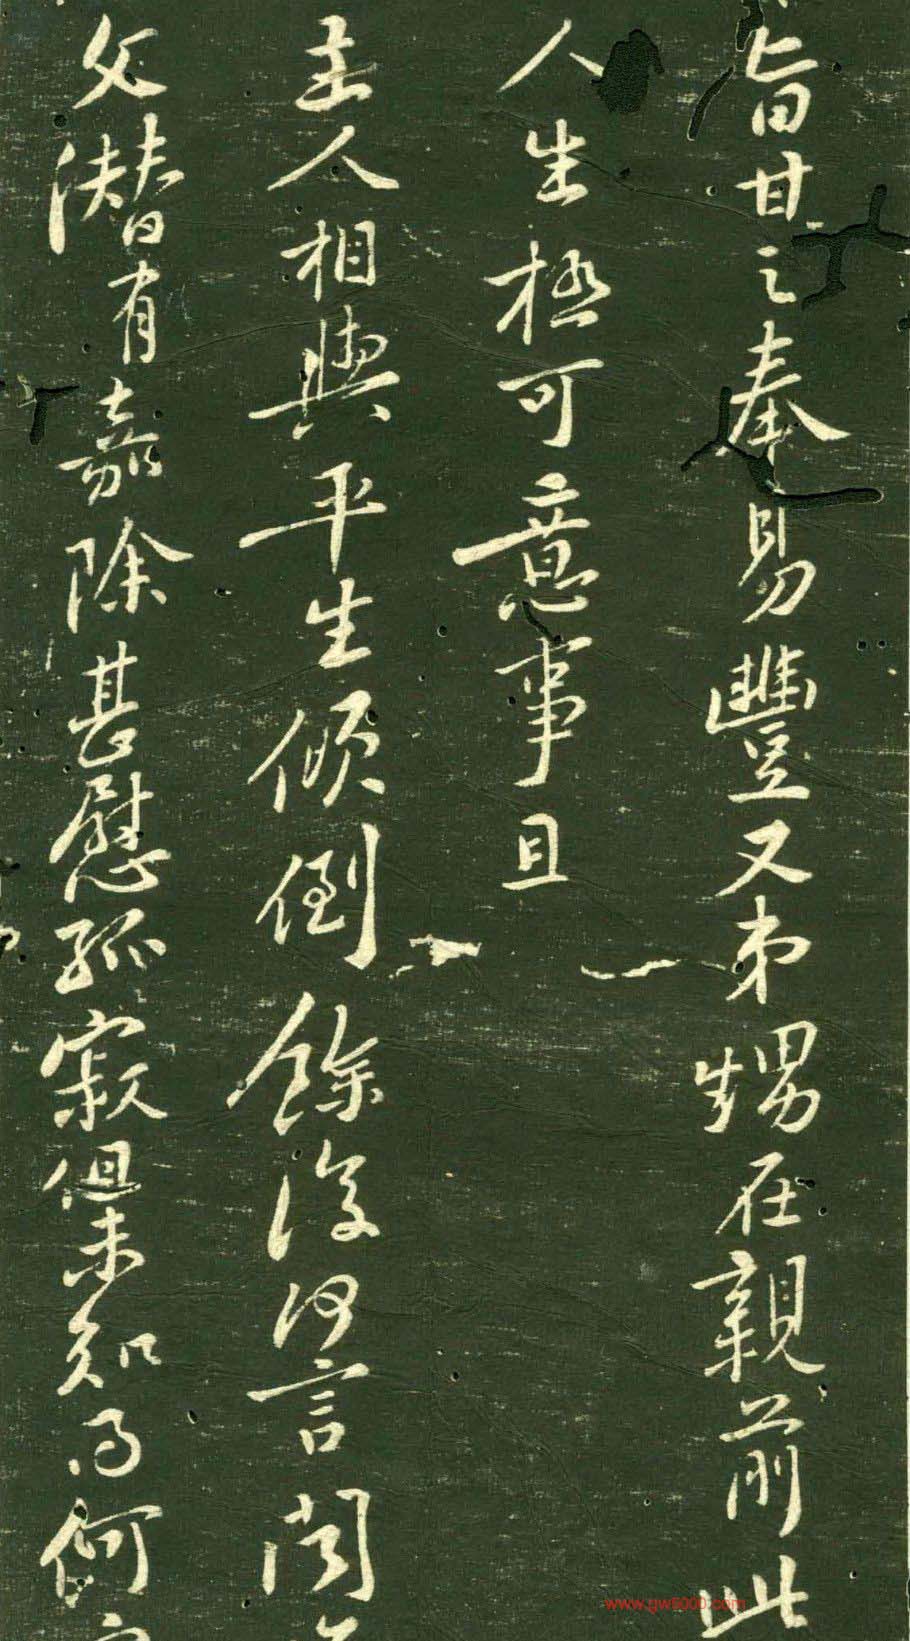 旨甘之奉易豐又弟甥在親前此
人生極可意事且
主人相與平生傾倒餘復何言聞
文潛有嘉除甚慰孤寂但未知得何
www.gw5000.com